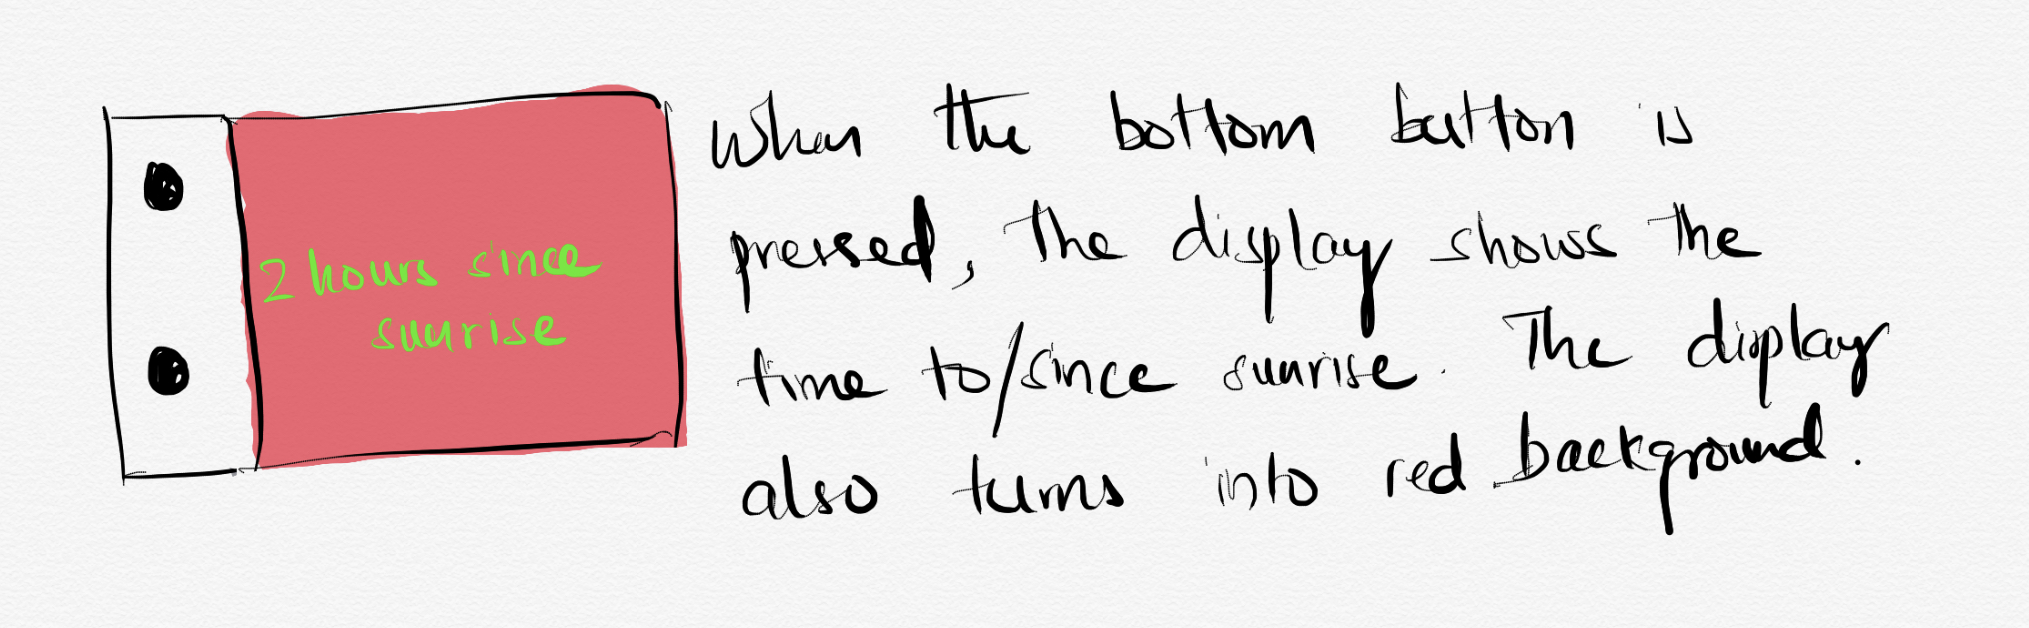 2 hours since
sunrise
When the bottom button is
pressed, the display shows the
time to/since sunrise. The display
also turns into red background.